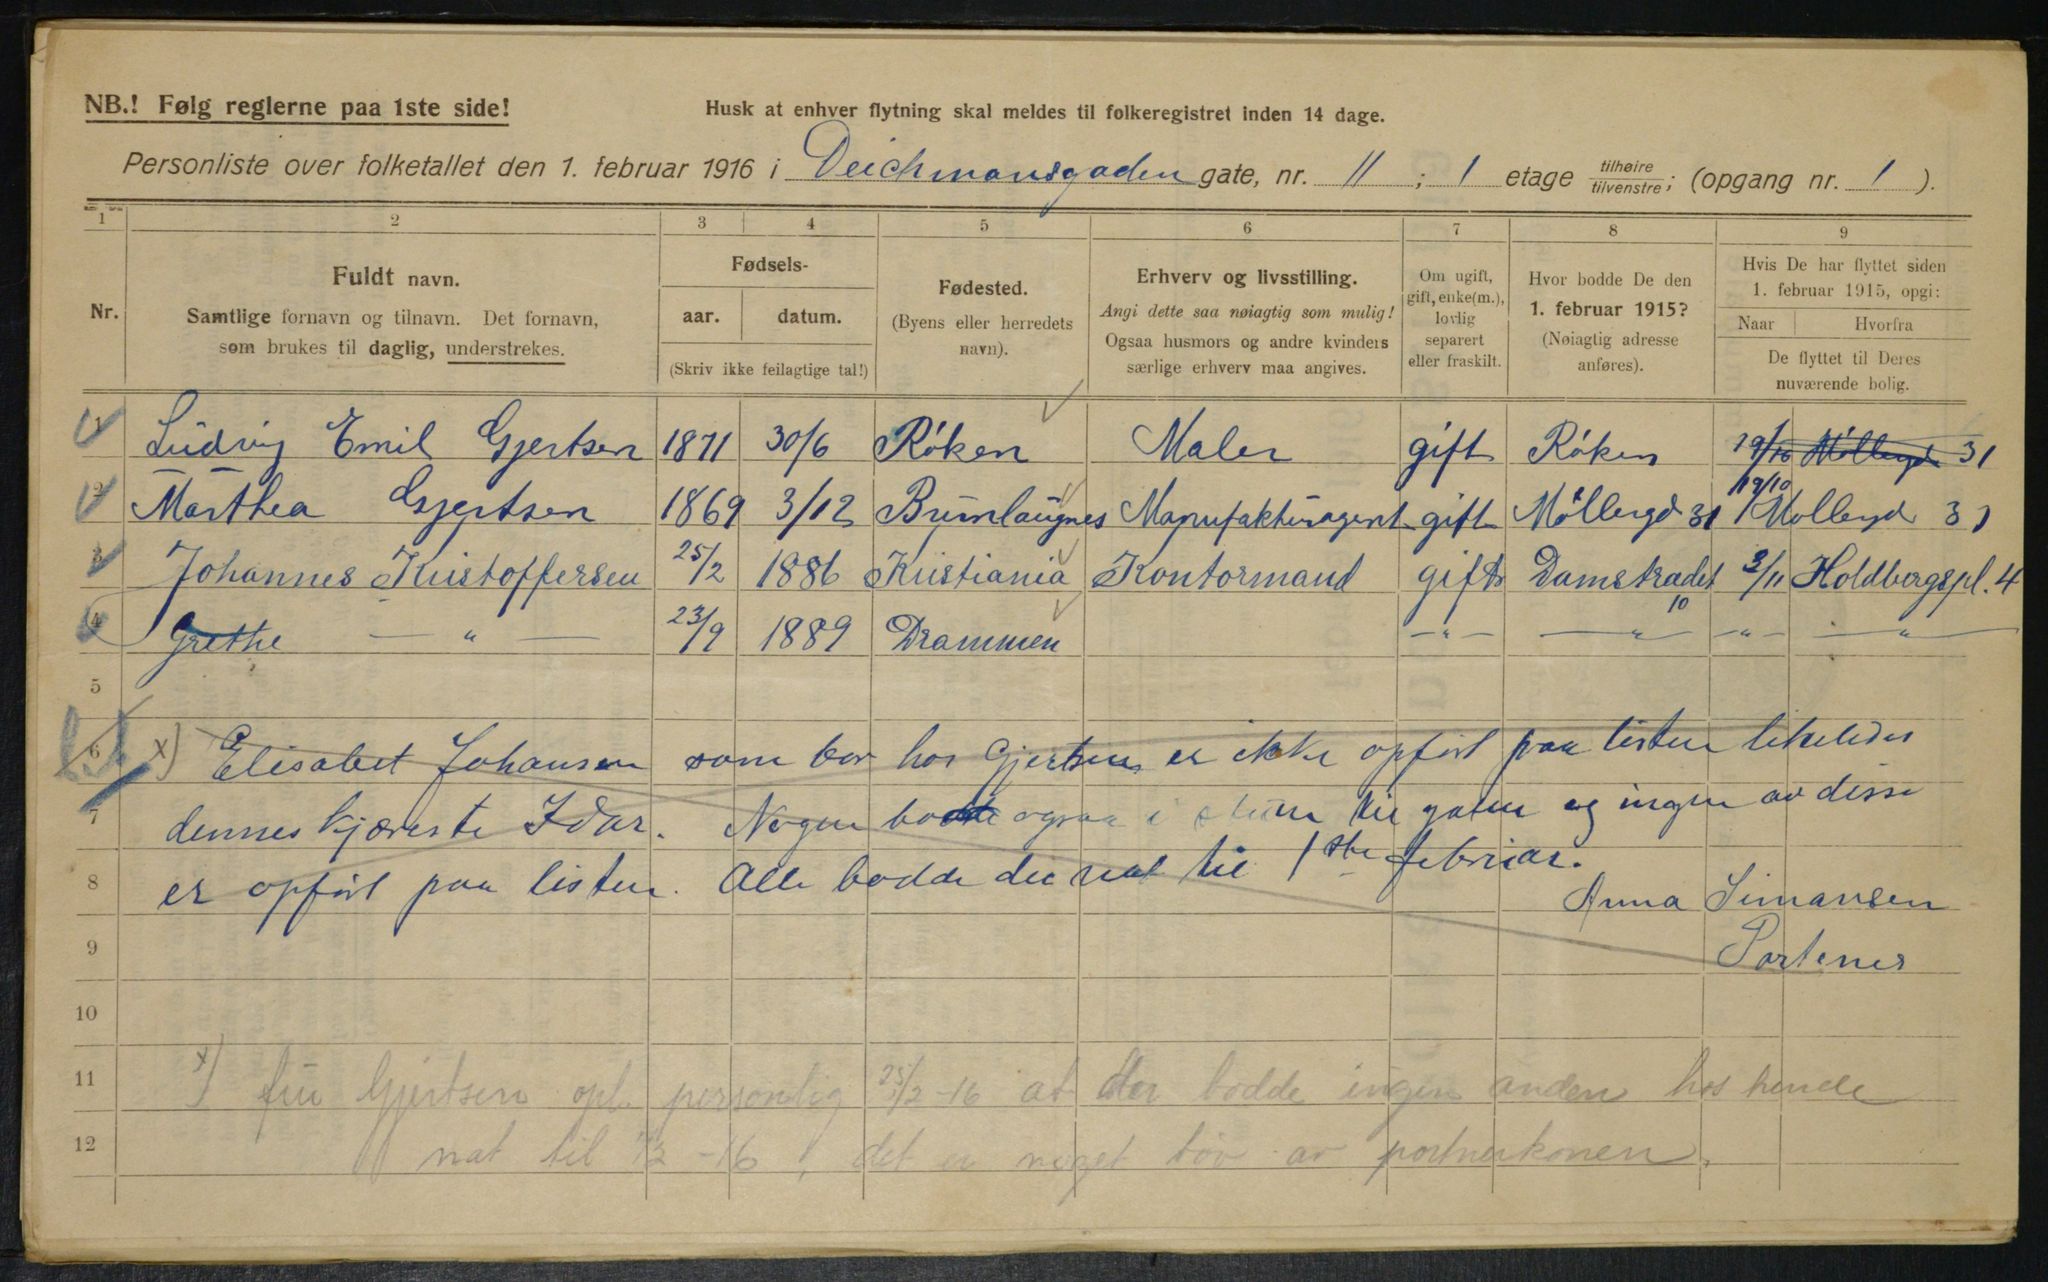 NB.! Følg reglerne paa 1ste side!
Husk at enhver flytning skal meldes til folkeregistret inden 14 dage.
Personliste over folketallet den 1. februar 1916 i Deichmansgaden gate, nr. 11 ; 1 etage tilhøire / tilvenstre ; (opgang nr. 1 ).
1 2 3 4 5 6 7 8 9
Nr.
Fuldt navn.
Samtlige fornavn og tilnavn. Det fornavn,
som brukes til daglig, understrekes.
Fødsels-
aar. datum.
(Skriv ikke feilagtige tal!)
Fødested.
(Byens eller herredets
navn).
Erhverv og livsstilling.
Angi dette saa nøiagtig som mulig!
Ogsaa husmors og andre kvinders
særlige erhverv maa angives.
Om ugift,
gift, enke(m.),
lovlig
separert
eller fraskilt.
Hvor bodde De den
1. februar 1915?
(Nøiagtig adresse
anføres).
Hvis De har flyttet siden
1. februar 1915, opgi:
Naar Hvorfra
De flyttet til Deres
nuværende bolig.
1 Ludvig Emil Gjertsen 1871 30/6 Røken Maler gift Røken 19/10 Møllergd 31
2 Marthea Gjertsen 1869 3/12 Brunlaugnes Manufakturagent gift Møllergd 31 19/10 Møllergd 31
3 Johannes Kristoffersen 25/2 1886 Kristiania Kontormand gift Damstradet 10 3/11 Holdbergspl. 4
4 Grethe — " — 23/9 1889 Drammen — " — — " — — " — — " —
5
6 x) Elisabet Johansen som bor hos Gjertsen er ikke opført paa listen likeledes
7 dennes kjæreste Idar. Nogen bodde ogsaa i stuen til gaten og ingen av disse
8 er opført paa listen. Alle bodde der nat til 1ste februar.
Anna Simansen
9 Portener
10
11 x) fru Gjertsen opl. personlig 25/2-16 at der bodde ingen anden hos hende
12 nat til 1/2-16, det er noget tøv av portnerkonen.